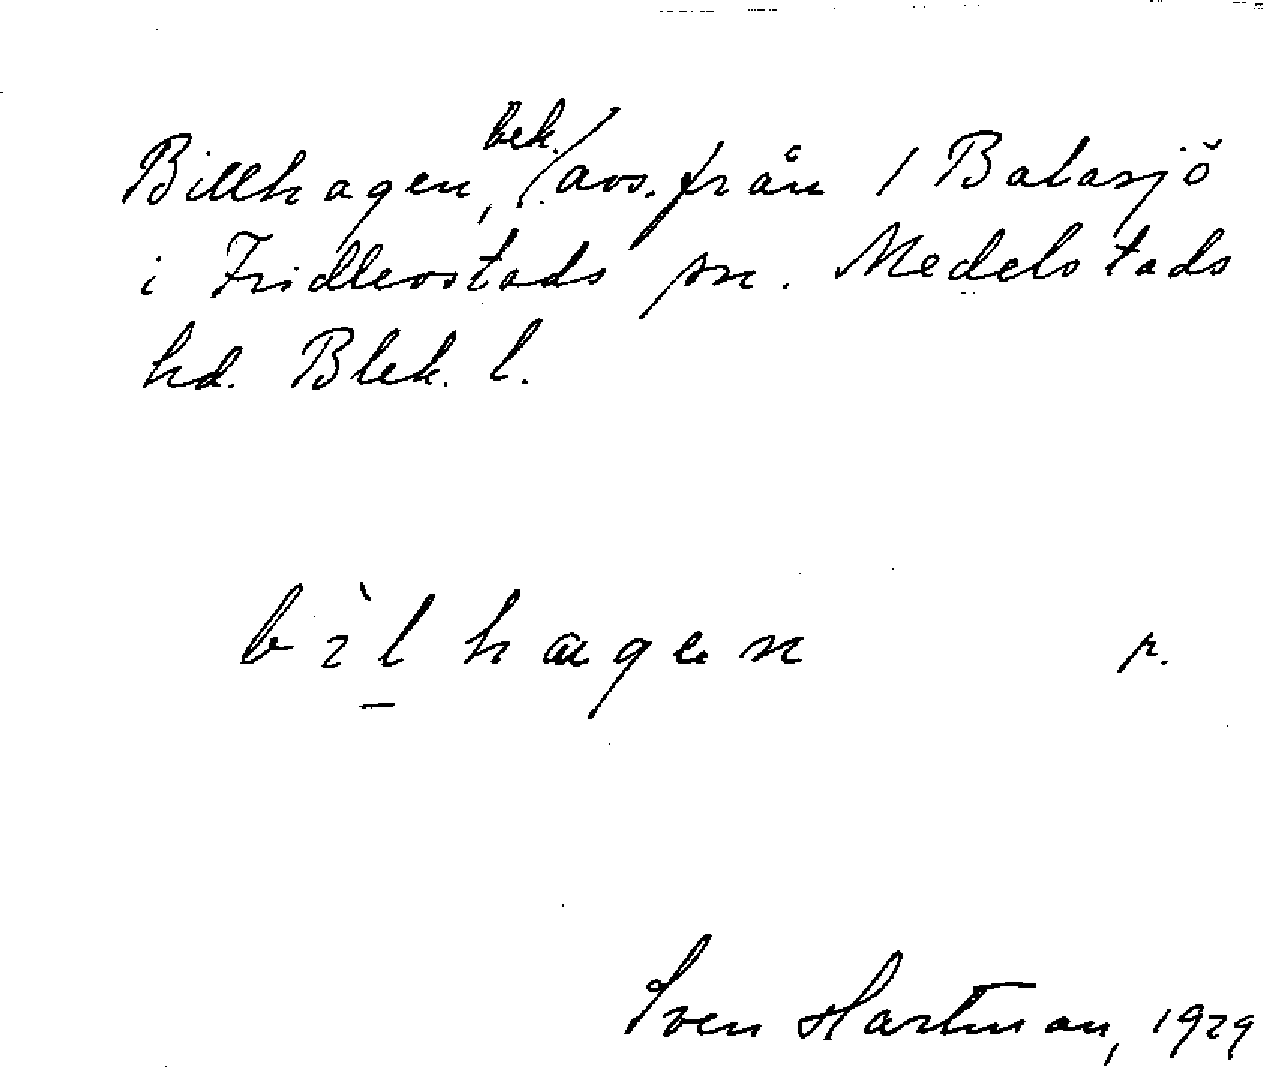 Billhagen, bek. avs. från 1 Balasjö
i Fridlevstads sn. Medelstads
hd. Blek. l.
bìlhagen r.
Sven Hartman, 1929